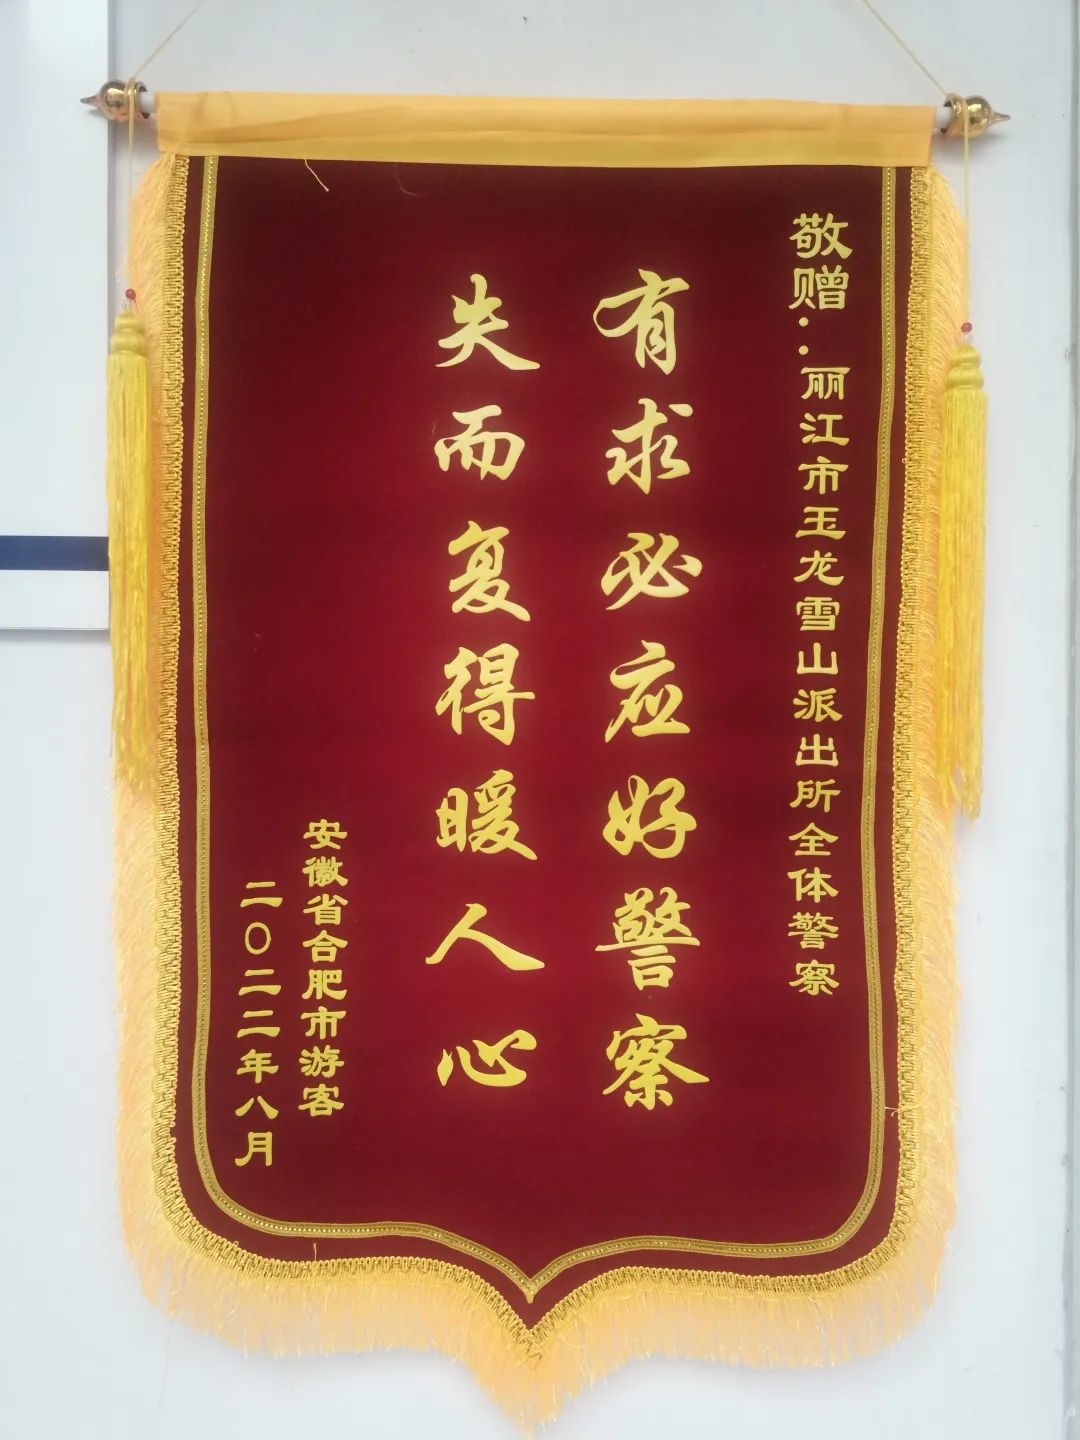 敬赠:丽江市玉龙雪山派出所全体警察
有求必应好警察
失而复得暖人心
安徽省合肥市游客
二〇二二年八月